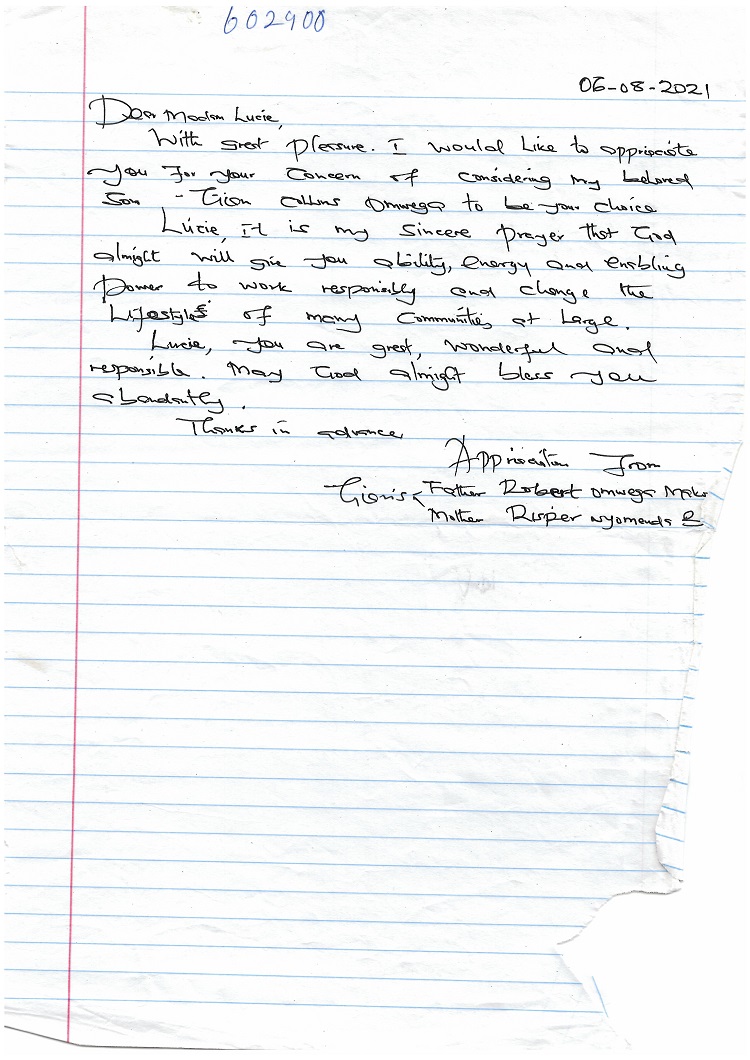 602900
06-08-2021
Dear Madam Lucie,
With great pleasure. I would like to appriaciate
you for your concern of considering my beloved
Son - Gian Collins Omwega to be your choice
Lucie, it is my sincere prayer that God
almight will give you ability, energy and enabling
power to work responsibly and change the
'Lifestyles' of many communities at large.
Lucie, you are great, wonderful and
responsible. May God almight bless you
abandantly.
Thanks in advance
Appriaciation from
Gian's < Father Robert Omwega
Mother Risper Nyomenda